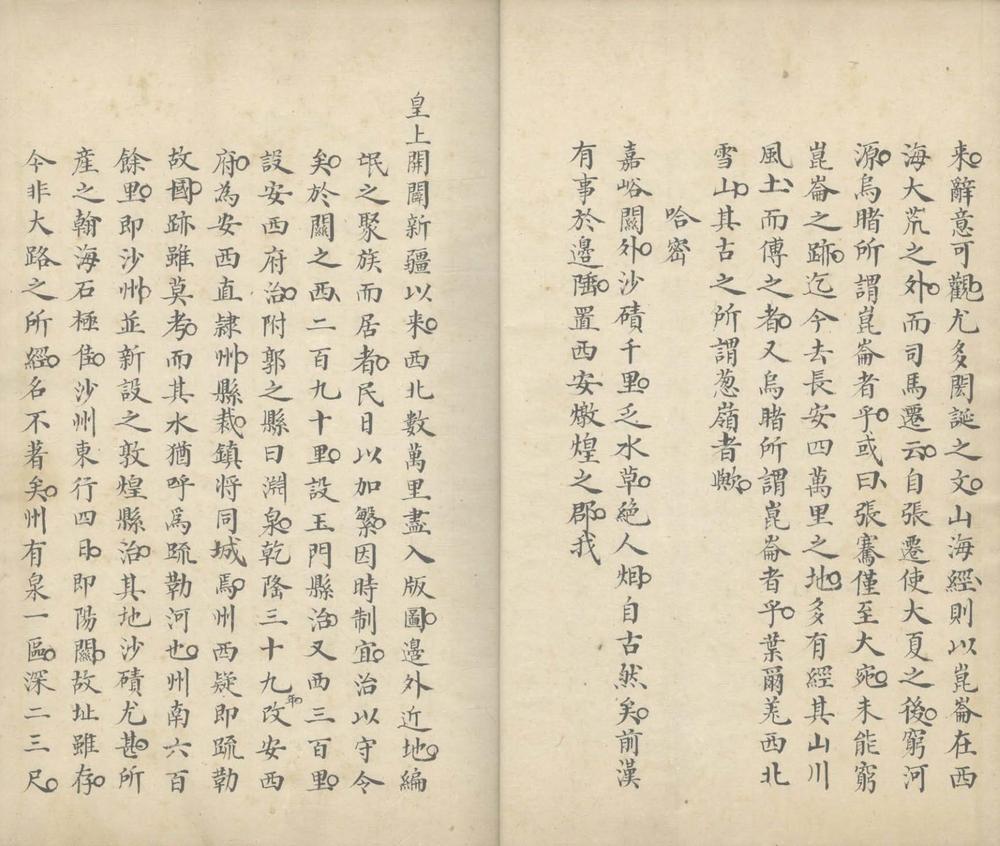 来辭意可觀尤多閎誕之文山海經則以崑崙在西
海大荒之外而司馬遷云自張遷使大夏之後窮河
源烏睹所謂崑崙者乎或曰張騫僅至大宛未能窮
崑崙之跡迄今去長安四萬里之地多有經其山川
風土而傳之者又烏睹所謂崑崙者乎葉爾羌西北
雪山其古之所謂葱嶺者歟
哈密
嘉峪關外沙磧千里乏水草絕人烟自古然矣前漢
有事於邊陲置西安燉煌之郡我
皇上開闢新疆以来西北數萬里盡入版圖邊外近地編
氓之聚族而居者民日以加繁因時制宜治以守令
矣於關之西二百九十里設玉門縣治又西三百里
設安西府治附郭之縣曰淵泉乾隆三十九年改安西
府為安西直隷州縣裁鎮将同城焉州西疑即疏勒
故國跡雖莫考而其水猶呼爲疏勒河也州南六百
餘里即沙州並新設之敦煌縣治其地沙磧尤甚所
産之翰海石極佳沙州東行四日即陽關故址雖存
今非大路之所經名不著矣州有泉一區深二三尺